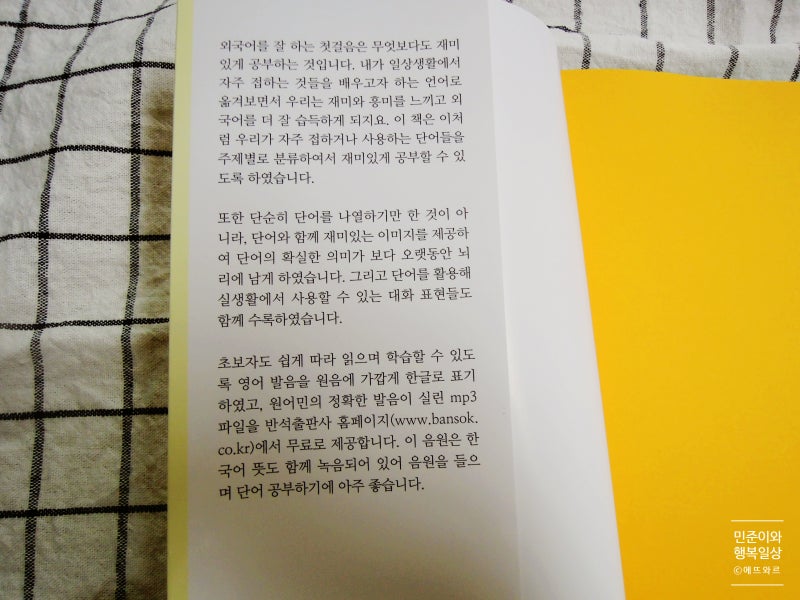 외국어를 잘 하는 첫걸음은 무엇보다도 재미
있게 공부하는 것입니다. 내가 일상생활에서
자주 접하는 것들을 배우고자 하는 언어로
옮겨보면서 우리는 재미와 흥미를 느끼고 외
국어를 더 잘 습득하게 되지요. 이 책은 이처
럼 우리가 자주 접하거나 사용하는 단어들을
주제별로 분류하여서 재미있게 공부할 수 있
도록 하였습니다.
또한 단순히 단어를 나열하기만 한 것이 아
니라, 단어와 함께 재미있는 이미지를 제공하
여 단어의 확실한 의미가 보다 오랫동안 뇌
리에 남게 하였습니다. 그리고 단어를 활용해
실생활에서 사용할 수 있는 대화 표현들도
함께 수록하였습니다.
초보자도 쉽게 따라 읽으며 학습할 수 있도
록 영어 발음을 원음에 가깝게 한글로 표기
하였고, 원어민의 정확한 발음이 실린 mp3
파일을 반석출판사 홈페이지(www.bansok.
co.kr)에서 무료로 제공합니다. 이 음원은 한
국어 뜻도 함께 녹음되어 있어 음원을 들으
며 단어 공부하기에 아주 좋습니다.
민준이와
행복일상
©에뜨와르